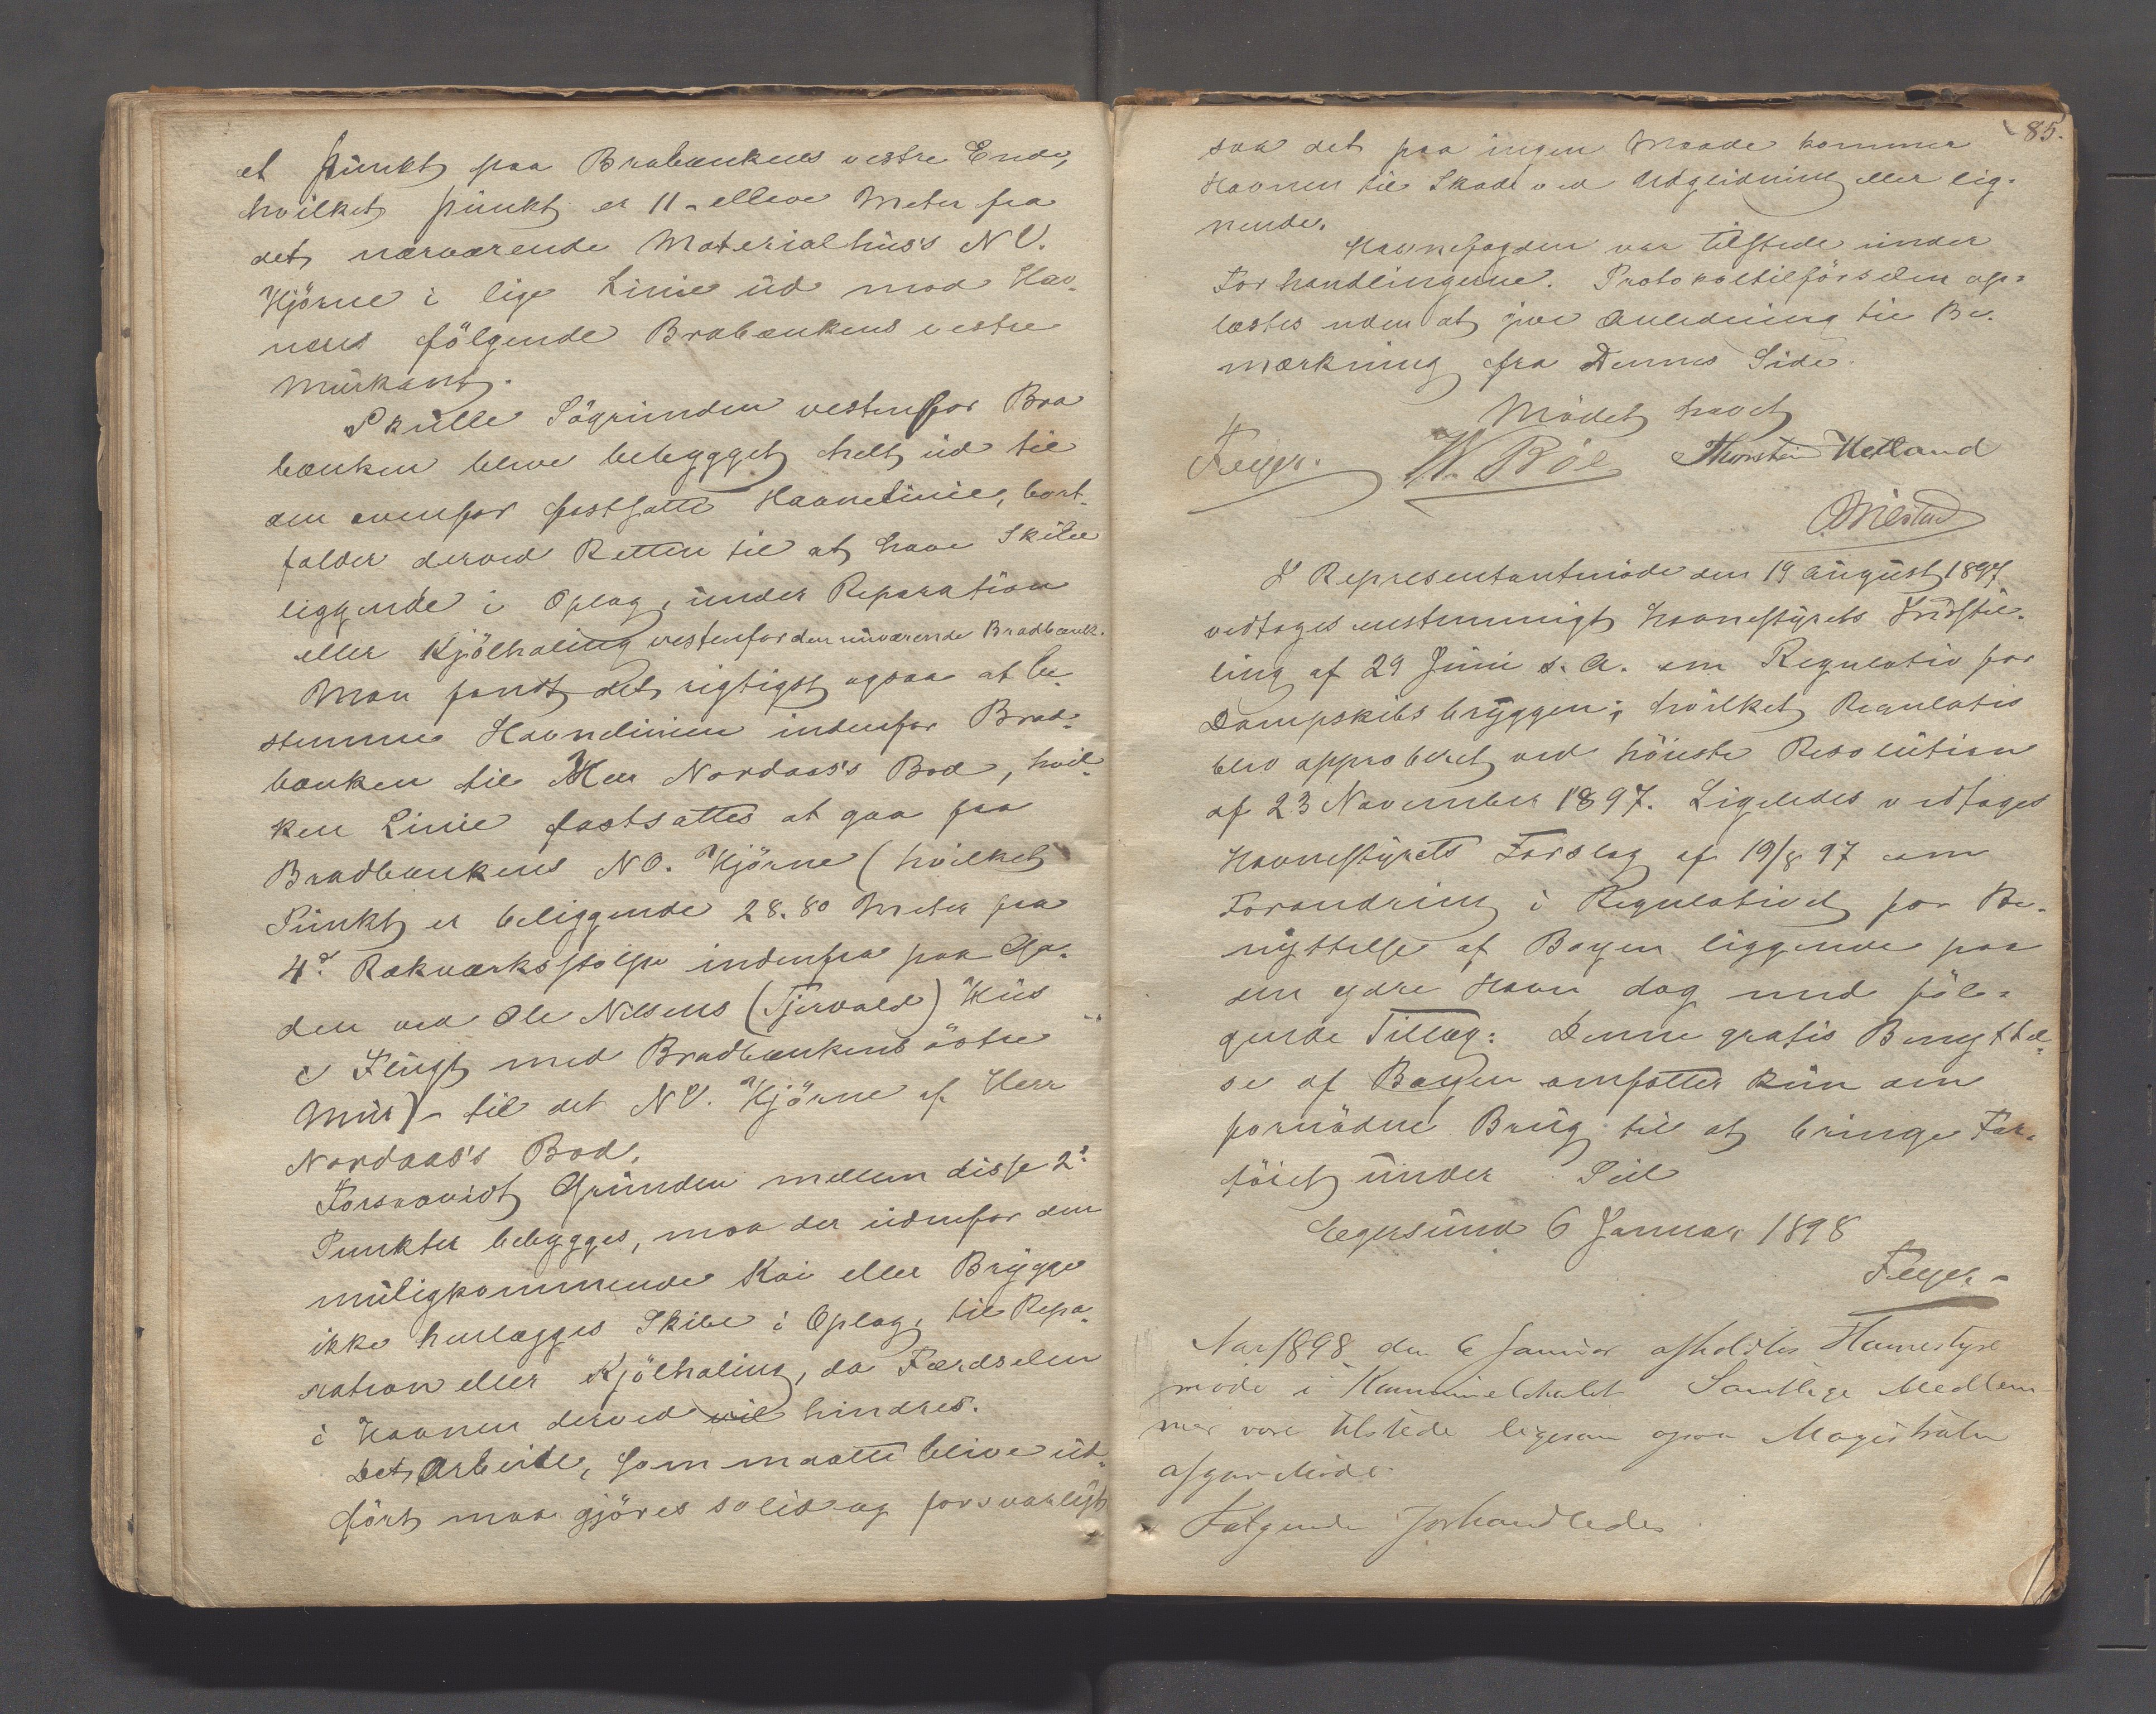 et punkt paa Brabænkens vestre Ende,
hvilket punkt er 11 - elleve Meter fra
det nærværende Materialhus's N V.
Hjörne i lige Linie ud mod Hav-
nens fölgende Brabænkens vestre
Murkant.
Skulle Sögrunden vestenfor Bra
bænken blive bebygget helt ud til
den ovenfor fastsatte Havnelinie, bort-
falder derved Retten til at have Skibe
liggende i Oplag, under Reparation
eller Kjölhaling vestenfor den nuværende Bradbænk.
Man fandt det rigtigst ogsaa at be-
stemme Havnelinien indenfor Brad-
bænken til Herr Nordaas's Bod, hvil-
ken Linie fastsattes at gaa fra
Bradbænkens N O. Hjörne (hvilket
Punkt er beliggende 28.80 Meter fra
4de Rækværksstolpe indenfra paa Ga-
den ved Ole Nilsens (Tjervald) Hus
i Flugt med Bradbænkens östre
Mur) - til det N V. Hjörne af Herr
Nordaas's Bod.
Forsaavidt Grunden mellem disse 2de
Punkter bebygges, maa der udenfor den
muligkommende Kai eller Brygge
ikke henlægges Skibe i Oplag, til Repa-
ration eller Kjölhaling, da Færdselen
i Havnen derved vil hindres.
Det Arbeide, som maatte blive ud-
fört maa gjöres solid og forsvarligt
85.
saa det paa ingen Maade kommer
Havnen til Skade ved Udglidning eller lig-
nende.
Havnefogden var tilstede under
Forhandlingerne. Protokoltilförselen op-
læstes uden at give Anledning til Be-
mærkning fra Dennes Side.
Mödet hævet
Feyer. W. Böe Thorstein Hetland
I Representantmöde den 19 August 1897
vedtoges enstemmigt Havnestyrets Indstil-
ling af 29 Juni d. A. om Regulativ for
Dampskibsbryggen; hvilket Regulativ
blev approberet ved höieste Resolution
af 23 November 1897. Ligeledes vedtoges
Havnestyrets Forslag af 19/8 97 om
Forandring i Regulativet for Be-
nyttelse af Bøyen liggende paa
den ydre Havn dog med föl-
gende Tillæg: Denne gratis Benyttel-
se af Bøyen omfatter kun den
fornödne Brug til at bringe Far-
töiet under Seil
Egersund 6 Januar 1898
Feyer -
Aar 1898 den 6 Januar afholdtes Havnestyre
möde i Kommunelokalet Samtlige Medlem
mer vare tilstede ligesom ogsaa Magistraten
afgav Möde
Følgende Forhandledes.